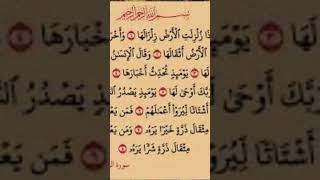 بِسْمِ اللَّهِ الرَّحْمَٰنِ الرَّحِيمِ
ذَا زُلْزِلَتِ الْأَرْضُ زِلْزَالَهَا ۝ وَأَخْرَ
الْأَرْضُ أَثْقَالَهَا ۝ وَقَالَ الْإِنسَٰنُ
لَهَا ۝ يَوْمَئِذٍ تُحَدِّثُ أَخْبَارَهَا ۝
رَبَّكَ أَوْحَىٰ لَهَا ۝ يَوْمَئِذٍ يَصْدُرُ النَّا
أَشْتَاتًا لِّيُرَوْا أَعْمَٰلَهُمْ ۝ فَمَن يَعْ
مِثْقَالَ ذَرَّةٍ خَيْرًا يَرَهُ ۝ وَمَن يَعْ
مِثْقَالَ ذَرَّةٍ شَرًّا يَرَهُ ۝
سورة ال